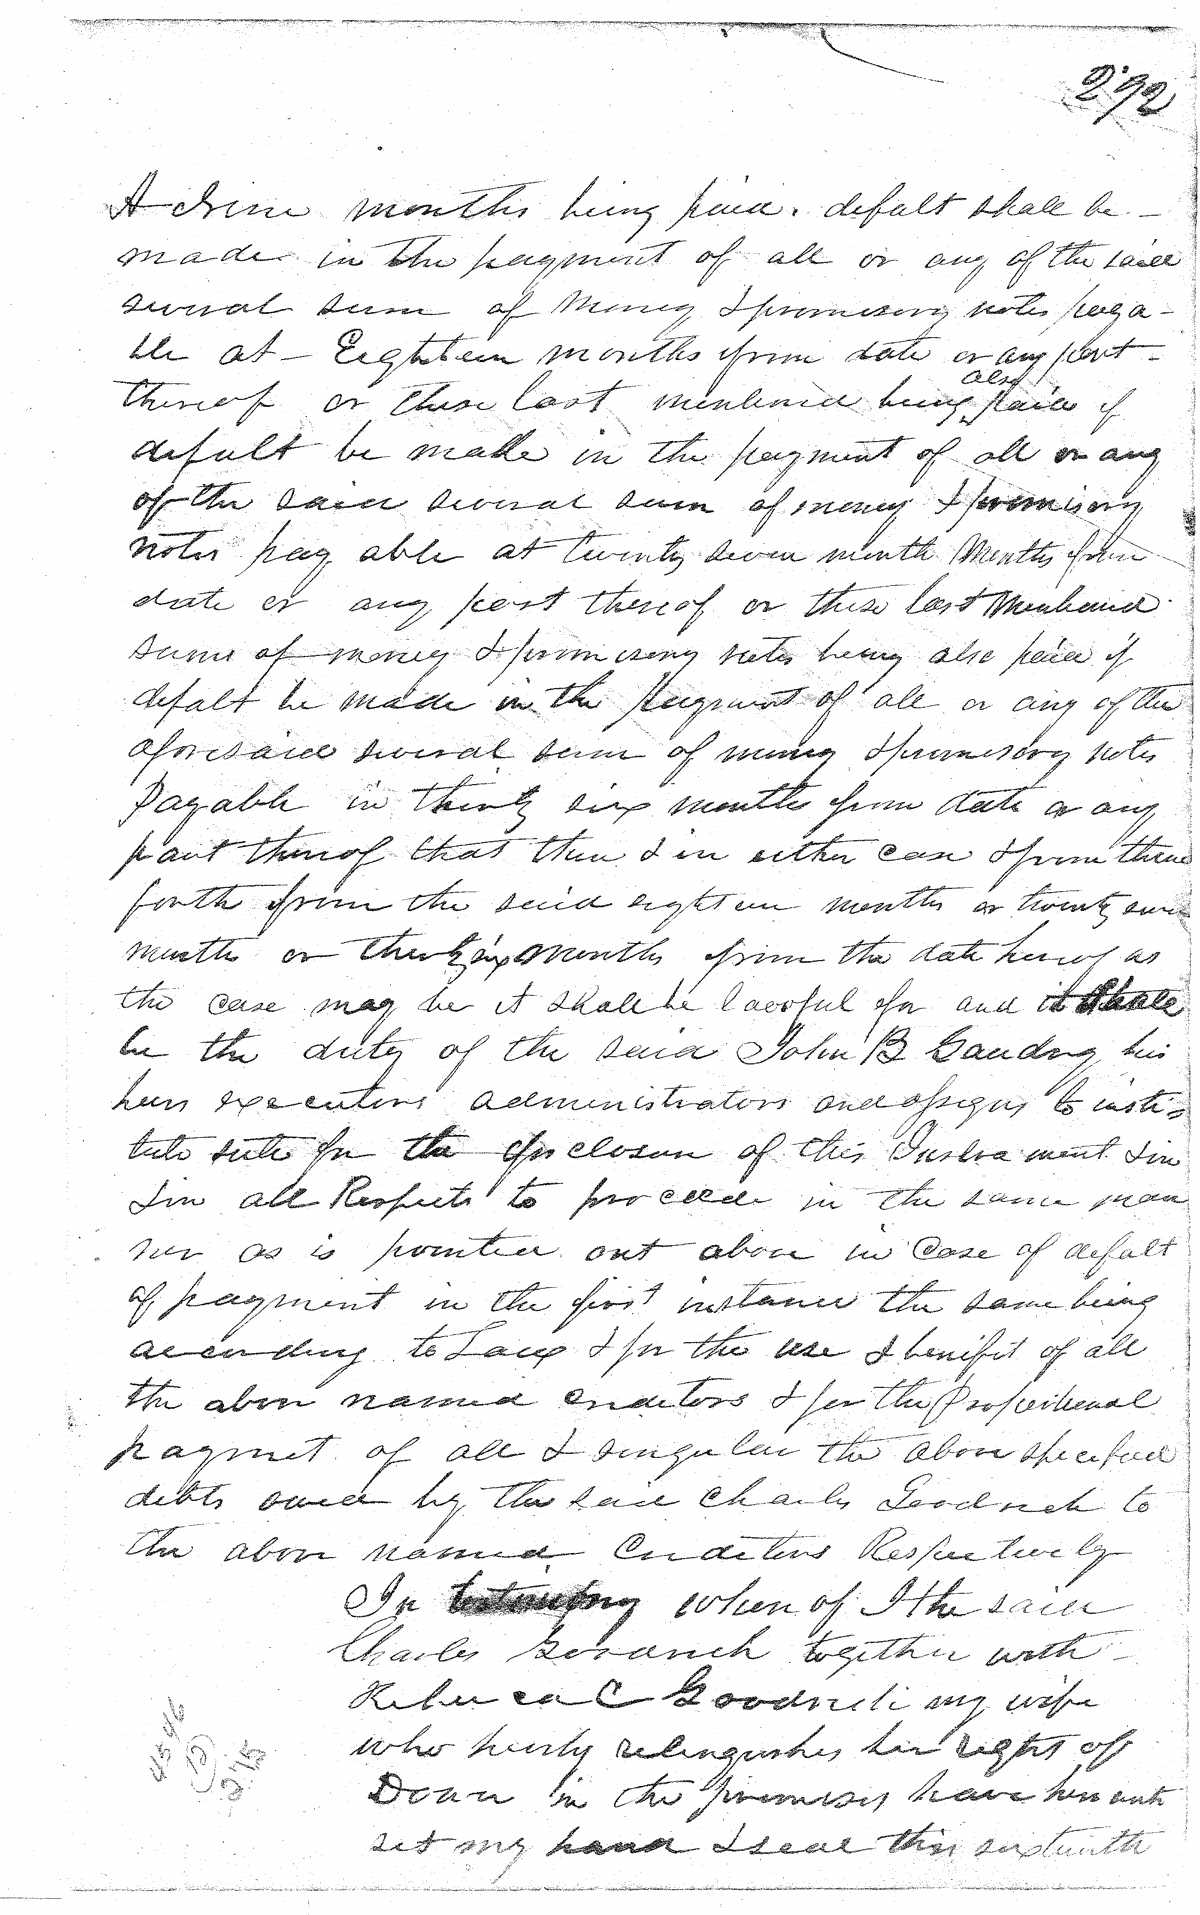 292
& nine months being paid. defalt shall be
made in the payment of all or any of the said
several sum of Money & promisory notes paya-
ble at Eighteen months from date or any part
thereof or these last mentioned being also paid if
defalt be made in the payment of all or any
of the said several sum of money & promisory
notes pay able at twenty seven month Months from
date or any part thereof or these last Mentioned
sums of money & promisory notes being also paid if
defalt be made in the payment of all or any of the
aforesaid several sum of money & promisory notes
Payable in thirty six months from date or any
part thereof that then & in either case & from thence
forth from the said eighteen months or twenty seven
months or thirty six months from the date hereof as
the case may be it shall be lawful for and it shall
be the duty of the said John B Gaudry his
heirs executors administrators and assigns to insti-
tute sute for the forclosure of this Instrament & in
& in all Respects to proceede in the same man
ner as is pointed out above in Case of defalt
of payment in the first instance the same being
according to Law & for the use & benifit of all
the above named creditors & for the Proportional
paymet of all & singular the above specified
debts owed by the said Charles Goodrich to
the above named Creditors Respectively
In testimony where of I the said
Charles Goodrich together with
Rebecca C Goodrich my wife
who hereby relinquishes her right off
Dower in the premises have here unto
set my hand & seal this sixteenth